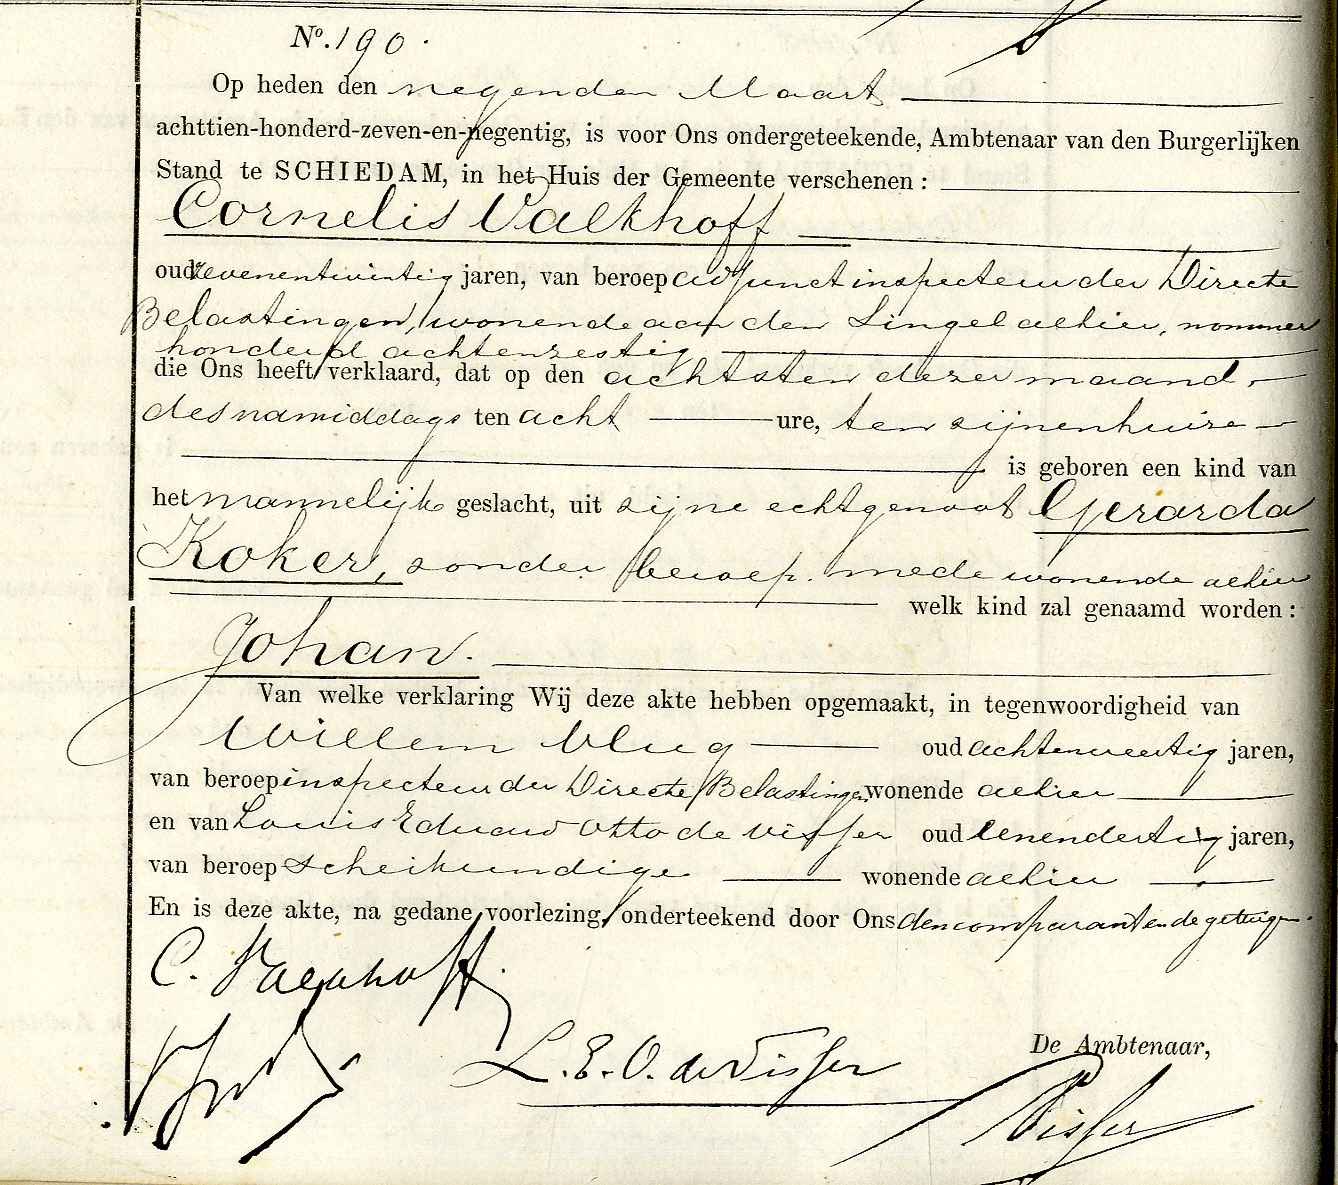 No. 190.
Op heden den negenden Maart
achttien-honderd-zeven-en-negentig, is voor Ons ondergeteekende, Ambtenaar van den Burgerlijken
Stand te SCHIEDAM, in het Huis der Gemeente verschenen :
Cornelis Valkhoff
oud zevenentwintig jaren, van beroep adjunct inspecteur der Directe
Belastingen, wonende aan den Singel alhier, nommer
honderd achtenzestig
die Ons heeft verklaard, dat op den achtsten dezer maand,
des namiddags ten acht ure, ten zijnen huize
is geboren een kind van
het mannelijk geslacht, uit zijne echtgenoot Gerarda
Koker, zonder beroep, mede wonende alhier
welk kind zal genaamd worden :
Johan.
Van welke verklaring Wij deze akte hebben opgemaakt, in tegenwoordigheid van
Willem Vlug oud achtenveertig jaren,
van beroep inspecteur der Directe Belastingen, wonende alhier
en van Louis Eduard Otto de Visser oud eenendertig jaren,
van beroep scheikundige wonende alhier
En is deze akte, na gedane voorlezing, onderteekend door Ons den comparant en de getuigen.
C. Valkhoff.
L. E. O. de Visser
De Ambtenaar,
Visser